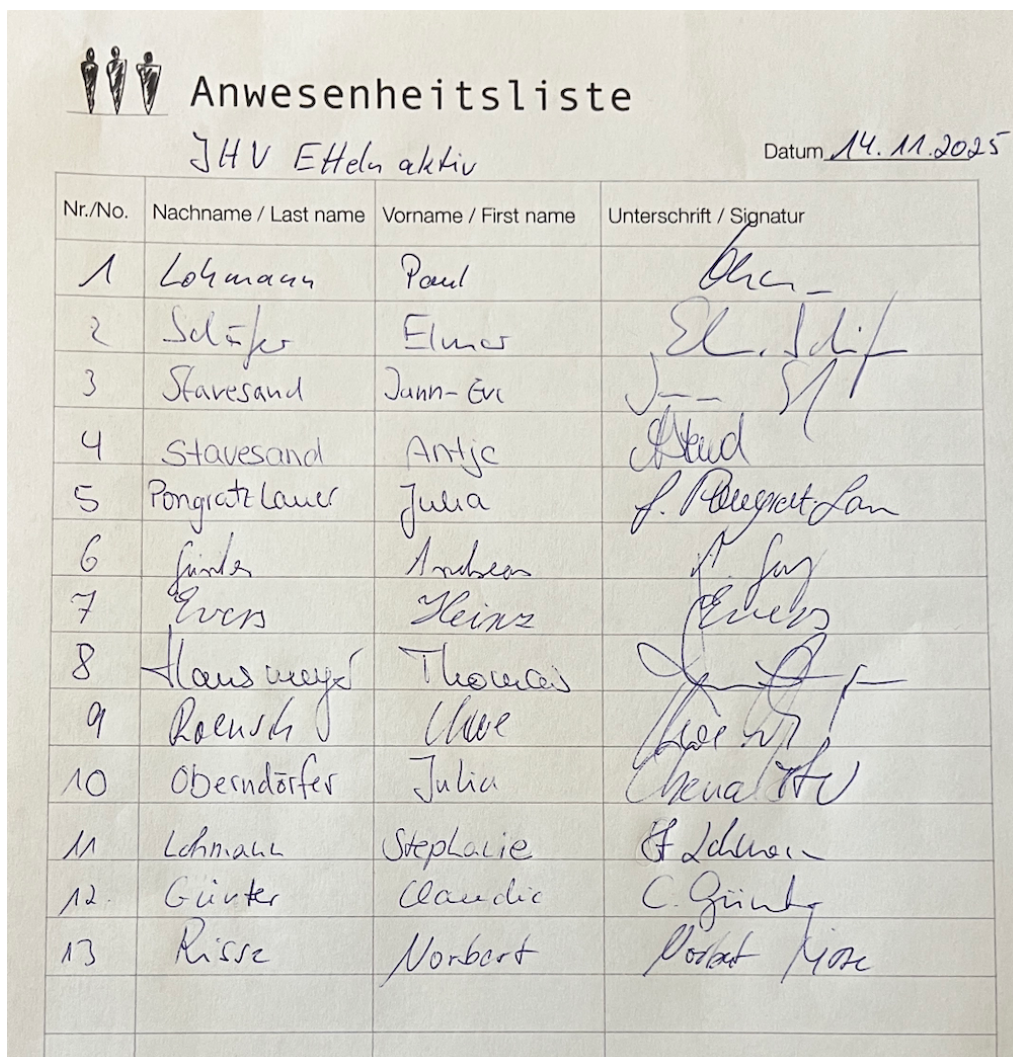 Anwesenheitsliste
JHV Etteln aktiv Datum 14.11.2025
Nr./No. Nachname / Last name Vorname / First name Unterschrift / Signatur
1 Lohmann Paul
2 Schäfer Elmar
3 Stavesand Jann-Eve
4 Stavesand Antje
5 Pongratz Lauer Julia
6 Günter Andreas
7 Evers Heinz Evers
8 Hansmeyer Thomas
9 Roensch Uwe
10 Oberndörfer Julia
11 Lohmann Stephanie
12. Günter Claudia C. Günter
13 Risse Norbert Norbert Risse